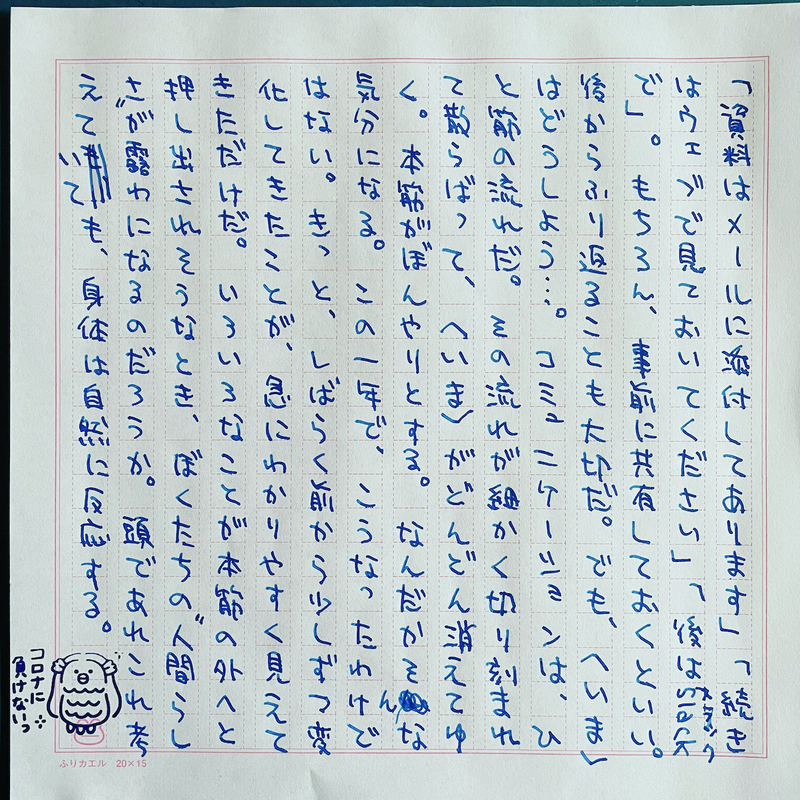 「資料はメールに添付してあります」「続き
はウェブで見ておいてください」「後はslack
スラック
で」。もちろん、事前に共有しておくといい。
後からふり返ることも大切だ。でも、〈いま〉
はどうしよう…。コミュニケーションは、ひ
と筋の流れだ。その流れが細かく切り刻まれ
て散らばって、〈いま〉がどんどん消えてゆ
く。本筋がぼんやりとする。なんだかそんな
気分になる。この一年で、こうなったわけで
はない。きっと、しばらく前から少しずつ変
化してきたことが、急にわかりやすく見えて
きただけだ。いろいろなことが本筋の外へと
押し出されそうなとき、ぼくたちの"人間らし
さ"が露わになるのだろうか。頭であれこれ考
えていても、身体は自然に反応する。
コロナに
負けないっ
ふりカエル 20×15